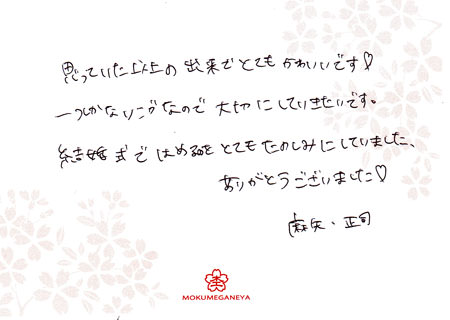 思っていた以上の出来でとてもかわいいです♡
一つしかないのでなので大切にしていきたいです。
結婚式ではめるをとてもたのしみにしていました、
ありがとうございました♡
麻矢・正司
杢
MOKUMEGANEYA